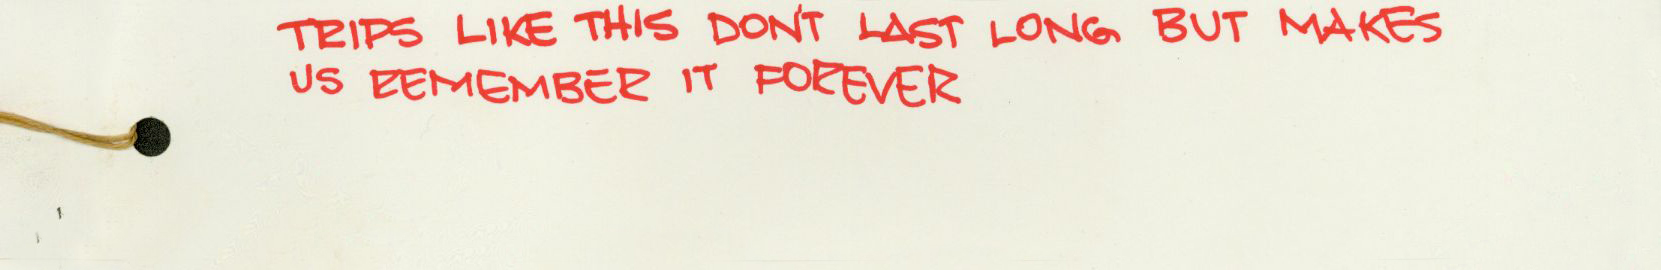 TRIPS LIKE THIS DON'T LAST LONG BUT MAKES
US REMEMBER IT FOREVER